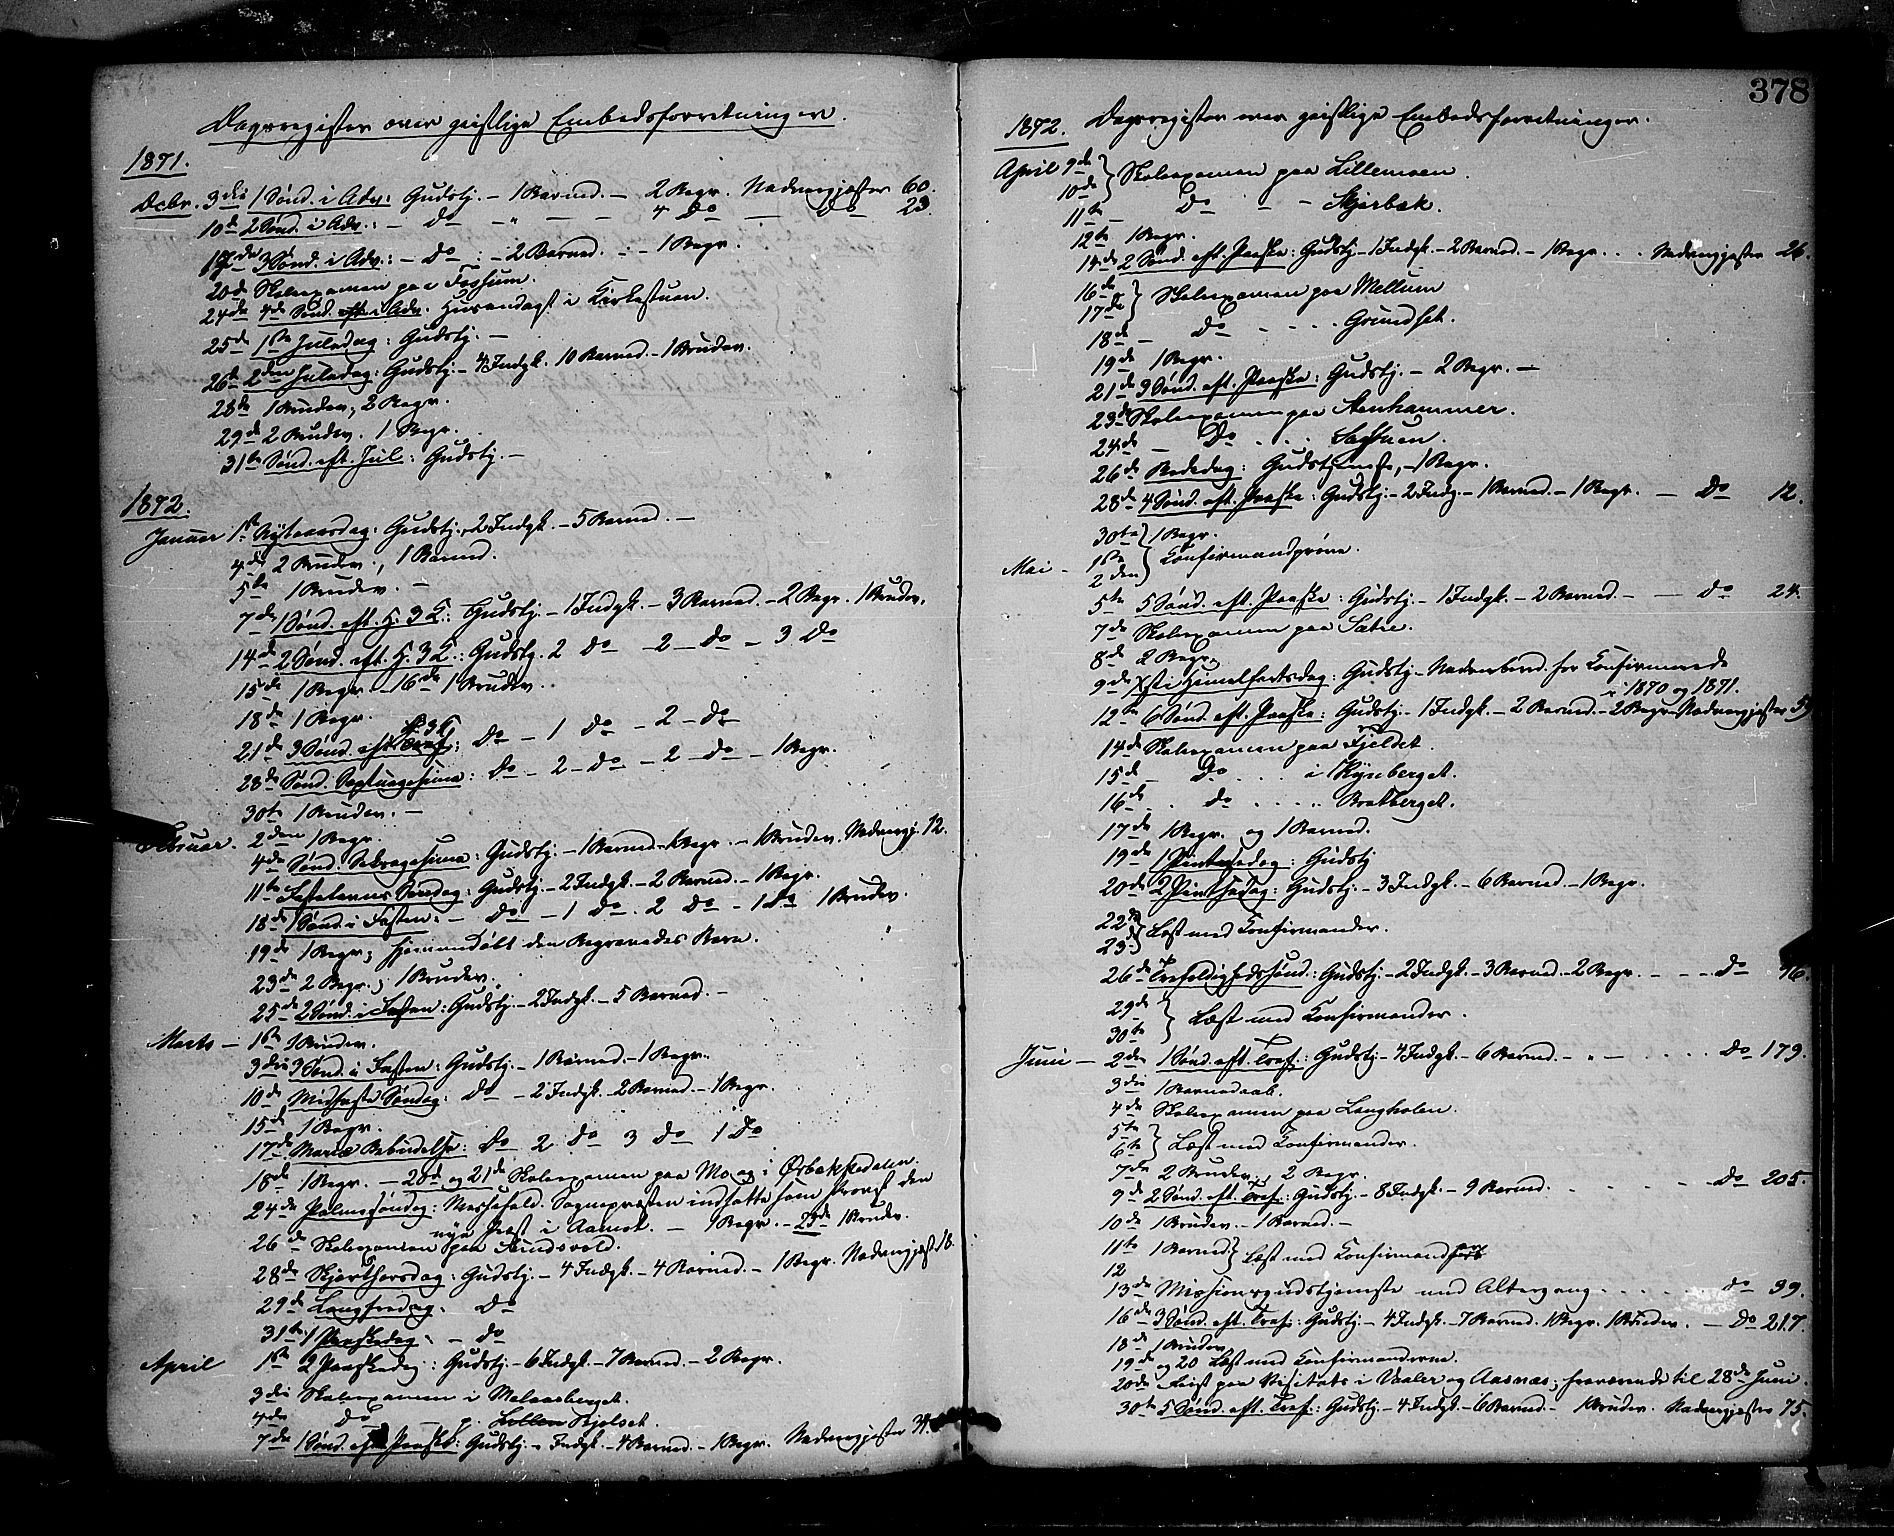 Dagsregister over geistlige Embedsforretninger.
1871.
Dcbr. 3die 1 Sønd. i Adv: Gudstj. – 1 Barned. – 2 Begr. Nadvergjæster 60.
10de 2 Sønd. i Adv.: – Do – " – – 4 Do – Do 23.
17de 3 Sønd. i Adv.: – Do : – 2 Barned. : – 1 Begr.
20de Skoleexamen paa Fossum.
24de 4de Sønd. i Adv. Husandagt i Kirkestuen.
25de 1ste Juledag: Gudstj. –
26de 2den Juledag: Gudstj. – 4 Indgk. 10 Barned. – 1 Brudev.
28de 1 Brudev., 2 Begr.
29de 2 Brudev. 1 Begr.
31te Sønd. eft. Jul: Gudstj. –
1872.
Januar 1ste Nytaarsdag: Gudstj., 2 Indgk. – 5 Barned. –
4de 2 Brudev., 1 Barned.
5te 1 Brudev. –
7de 1 Sønd. eft. H. 3 K.: Gudstj. – 1 Indgk. – 3 Barned. – 2 Begr. 1 Brudev.
14de 2 Sønd. eft. H. 3 K.: Gudstj. 2 Do – 2 – Do – 3 Do
15de 1 Begr. – 16de 1 Brudev.
18de 1 Begr.
21de 3 Sønd. eft. H. 3 K.: Do – 1 Do – 2 – Do
28de Sønd. Septuagesima: Do – 2 – Do – 2 – Do – 1 Begr.
30te 1 Brudev. –
Februar. 2den 1 Begr.
4de Sønd. Sexagesima: Gudstj. – 1 Barned – 1 Begr. – 1 Brudev. Nadvergj. 12.
11te Fastelavns Søndag: Gudstj. – 2 Indgk. – 2 Barned. – 1 Begr.
18de 1 Sønd. i Fasten: – Do – 1 Do. 2 Do – 1 Do 1 Brudev.
19de 1 Begr; hjemmedøbt den Begravedes Barn.
23de 2 Begr.; 1 Brudev.
25de 2 Sønd. i Fasten: Gudstj. – 2 Indgk. – 5 Barned. –
Marts – 1ste 1 Brudev.
3die 3 Sønd. i Fasten: Gudstj. – 1 Barned. – 1 Begr.
10de Midfaste Søndag: Do – 2 Indgk. – 2 Barned. – 1 Begr.
15de 1 Begr.
17de Mariæ Bebudelse: Do 2 Do 3 Do 1 Do
18de 1 Begr. – 20de og 21de Skoleexamen paa Mo og i Ørbækkedalen.
24de Palmesøndag: Messefald. Sognepræsten indsatte som Provst den
nye Præst i Aamot. – 1 Begr. – 23de 1 Brudev.
26de Skoleexamen paa Sundsvold.
28de Skjærthorsdag: Gudstj. – 4 Indgk. – 4 Barned. – 1 Begr. Nadvergjæst 18.
29de Langfredag. Do
31te 1 Paaskedag: – Do
April 1ste 2 Paaskedag: Gudstj. – 6 Indgk. – 7 Barned. – 2 Begr.
3die Skoleexamen i
4de Do p. Kjølset.
7de 1 Sønd. efter Paaske: Gudstj. – Indgk. – 4 Barned. – 1 Begr. Nadvergjæster 34.
378
1872. Dagsregister over geistlige Embedsforretninger.
April 9de
10de } Skoleexamen paa Lillemoen.
11te – Do – – Skjærbæk.
12te 1 Begr.
14de 2 Sønd. eft. Paaske: Gudstj. – 1 Indgk. – 2 Barned. – 1 Begr. . . . Nadvergjæster 26.
16de
17de } Skoleexamen paa Mellum
18de – Do . . . . Grundset.
19de 1 Begr.
21de 3 Sønd. eft. Paaske: Gudstj. – 2 Begr. –
23de Skoleexamen paa Stenhammer.
24de – Do . . . Sagstuen.
26de Bededag: Gudstjeneste, – 1 Begr.
28de 4 Sønd. eft. Paaske: Gudstj. – 2 Indg. – 1 Barned. – 1 Begr. – Do 12.
30te 1 Begr.
Mai – 1ste
2den } Konfirmandprøve.
5te 5 Sønd. eft. Paaske: Gudstj. – 1 Indgk. – 2 Barned. – – Do 24.
7de Skoleexamen paa Sætre.
8de 2 Begr.
9de Xsti Himmelfartsdag: Gudstj. – Nadverbord for Konfirmerede
i 1870 og 1871.
12te 6 Sønd. eft. Paaske: Gudstj. – 1 Indgk. – 2 Barned. – 2 Begr. – Nadvergjæster 59
14de Skoleexamen paa Fjeldet.
15de – Do . . . i Rynberget.
16de . . Do . . . . . Bratberget.
17de 1 Begr. og 1 Barned.
19de 1 Pintsedag: Gudstj
20de 2 Pintsedag: Gudstj. – 3 Indgk. – 6 Barned. – 1 Begr.
22de
23de } Læst med Konfirmander.
26de Trefoldighedssønd.: Gudstj. – 2 Indgk. – 3 Barned. – 2 Begr. – – – Do 46.
29de
30te } Læst med Konfirmander.
Juni – 2den 1 Sønd. eft. Tref.: Gudstj. – 4 Indgk. – 6 Barned. – " – . . . . Do 179.
3die 1 Barnedaab.
4de Skoleexamen paa Langholen.
5te
6te } Læst med Konfirmander.
7de 2 Brudev. 2 Begr.
9de 2 Sønd. eft. Tref.: Gudstj. – 8 Indgk. – 9 Barned. . . . . Do 205.
10de 1 Brudev. – 1 Barned. –
11te 1 Barned.
12 } Læst med Konfirmander
13de Missionsgudstjeneste med Altergang . . . . . Do 39.
16de 3 Sønd. eft. Tref: Gudstj. – 4 Indgk. – 7 Barned. 1 Begr. 1 Brudev. – Do 217.
18de 1 Brudev.
19de og 20 Læst med Konfirmanderne.
20de Reist paa Visitats i Vaaler og Aasnæs; fraværende til 28de Juni.
30te 5 Sønd. eft. Tref: Gudstj. – 4 Indgk. – 6 Barned. – 1 Brudev. Nadvergjæster 75.